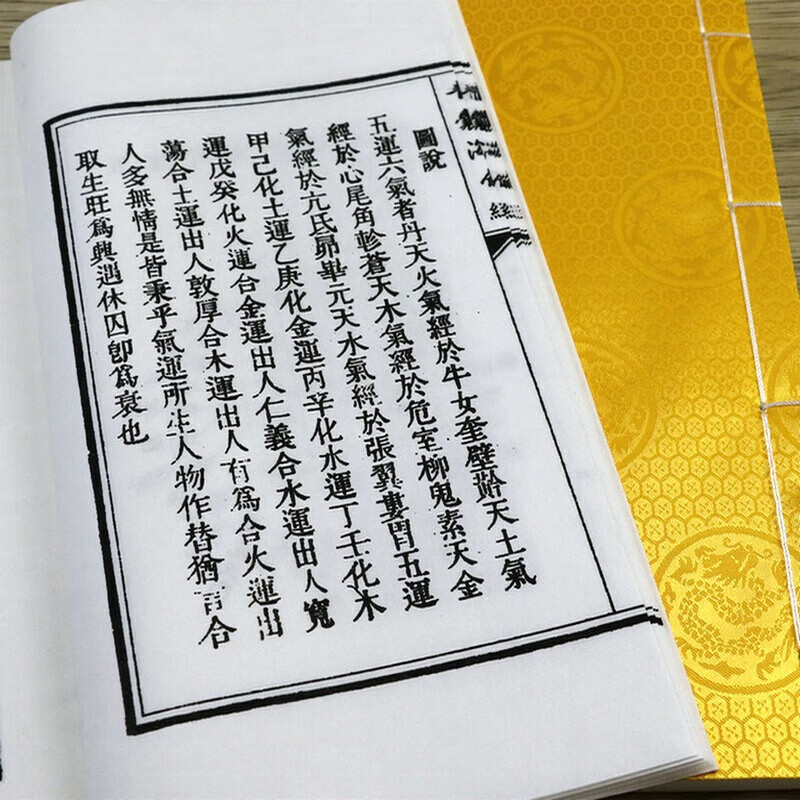 圖說
五運六氣者丹天火氣經於牛女奎壁黅天土氣
經於心尾角軫蒼天木氣經於危室柳鬼素天金
氣經於亢氐昴畢元天水氣經於張翼婁胃五運
甲己化土運乙庚化金運丙辛化水運丁壬化木
運戊癸化火運合金運出人仁義合水運出人寬
蕩合土運出人敦厚合木運出人有爲合火運出
人多無情是皆秉乎氣運所生人物作替猶言合
取生旺爲興遇休囚卽爲衰也